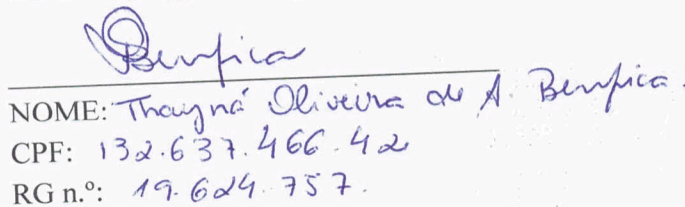 Benfica
NOME: Thayná Oliveira de A. Benfica.
CPF: 132.637.466.42
RG n.º: 19.624.757.